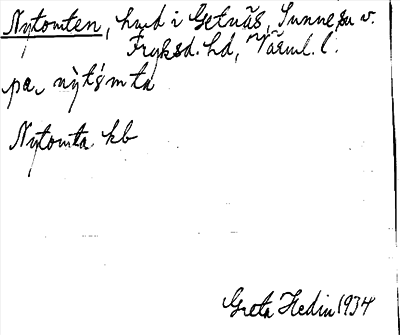 Nytomten, hmd i Getnäs, Sunne sn v.
Fryksd. hd, Värml. l.
på, nỳtǻmta
Nytomta kb
Greta Hedin 1934